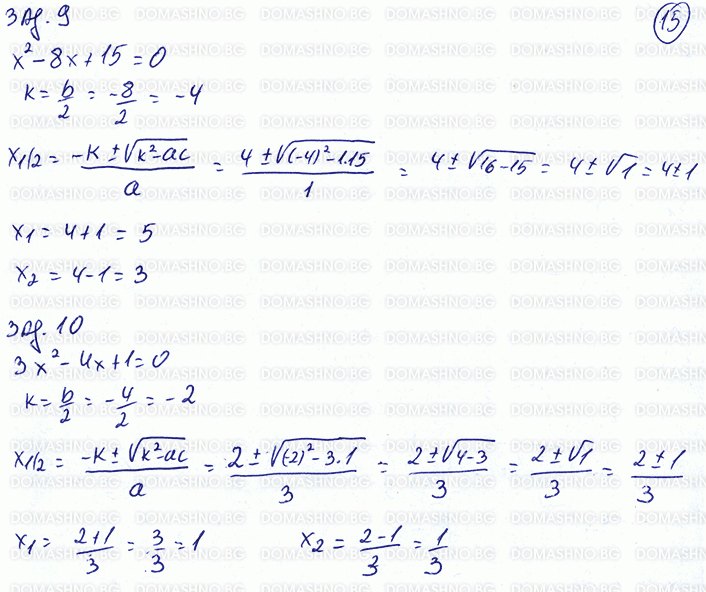 зад. 9
15
x² - 8x + 15 = 0
k = b/2 = -8/2 = -4
x₁/₂ = (-k ± √(k² - ac))/a = (4 ± √((-4)² - 1.15))/1 = 4 ± √(16 - 15) = 4 ± √1 = 4 ± 1
x₁ = 4 + 1 = 5
x₂ = 4 - 1 = 3
зад. 10
3x² - 4x + 1 = 0
k = b/2 = -4/2 = -2
x₁/₂ = (-k ± √(k² - ac))/a = (2 ± √((-2)² - 3.1))/3 = (2 ± √(4 - 3))/3 = (2 ± √1)/3 = (2 ± 1)/3
x₁ = (2+1)/3 = 3/3 = 1 x₂ = (2-1)/3 = 1/3
DOMASHNO.BG